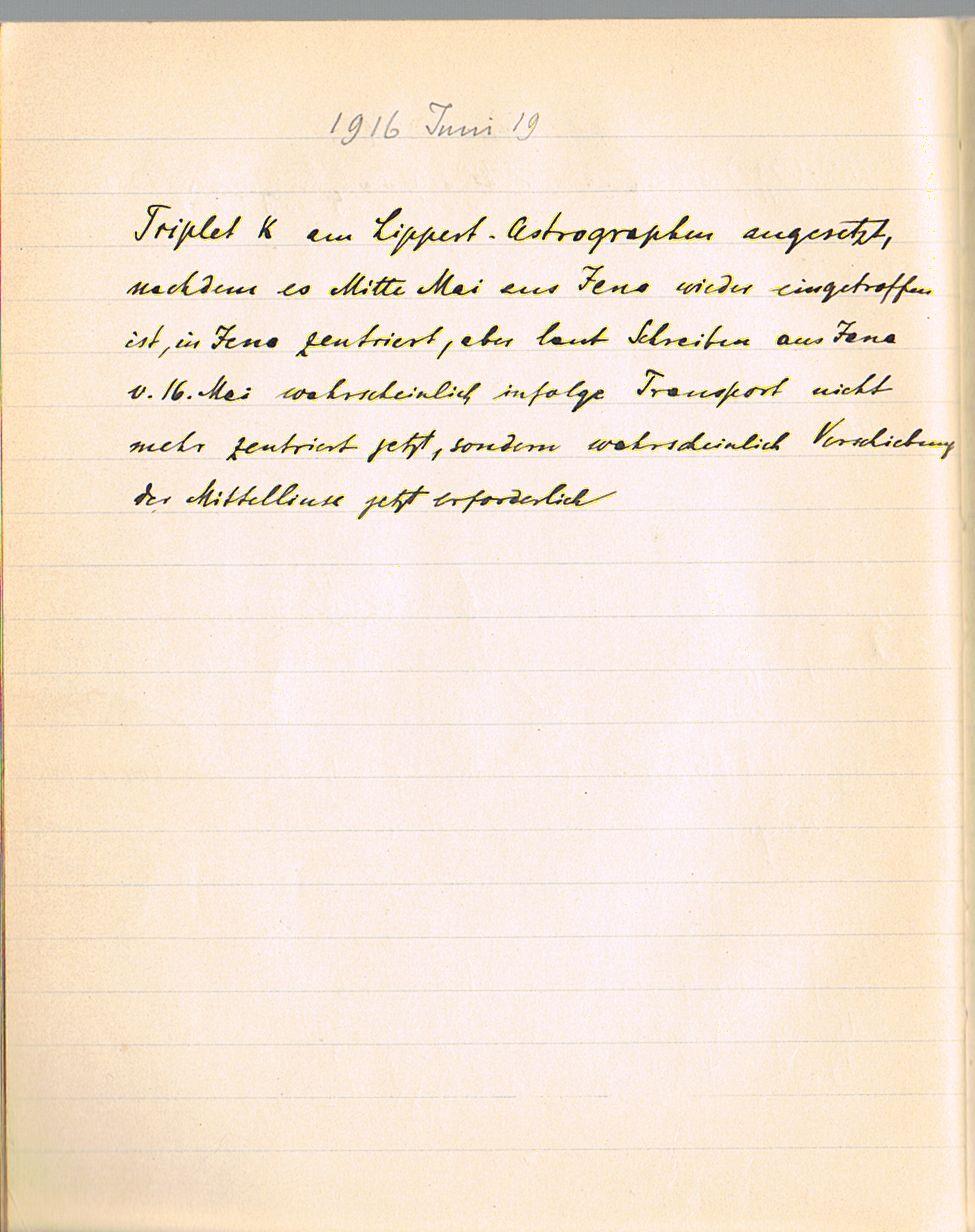 1916 Juni 19
Triplet K am Lippert-Astrographen angesetzt,
nachdem es Mitte Mai aus Jena wieder eingetroffen
ist, in Jena zentriert, aber laut Schreiben aus Jena
v. 16. Mai wahrscheinlich infolge Transport nicht
mehr zentriert jetzt, sondern wahrscheinlich Verschiebung
der Mittellinse jetzt erforderlich